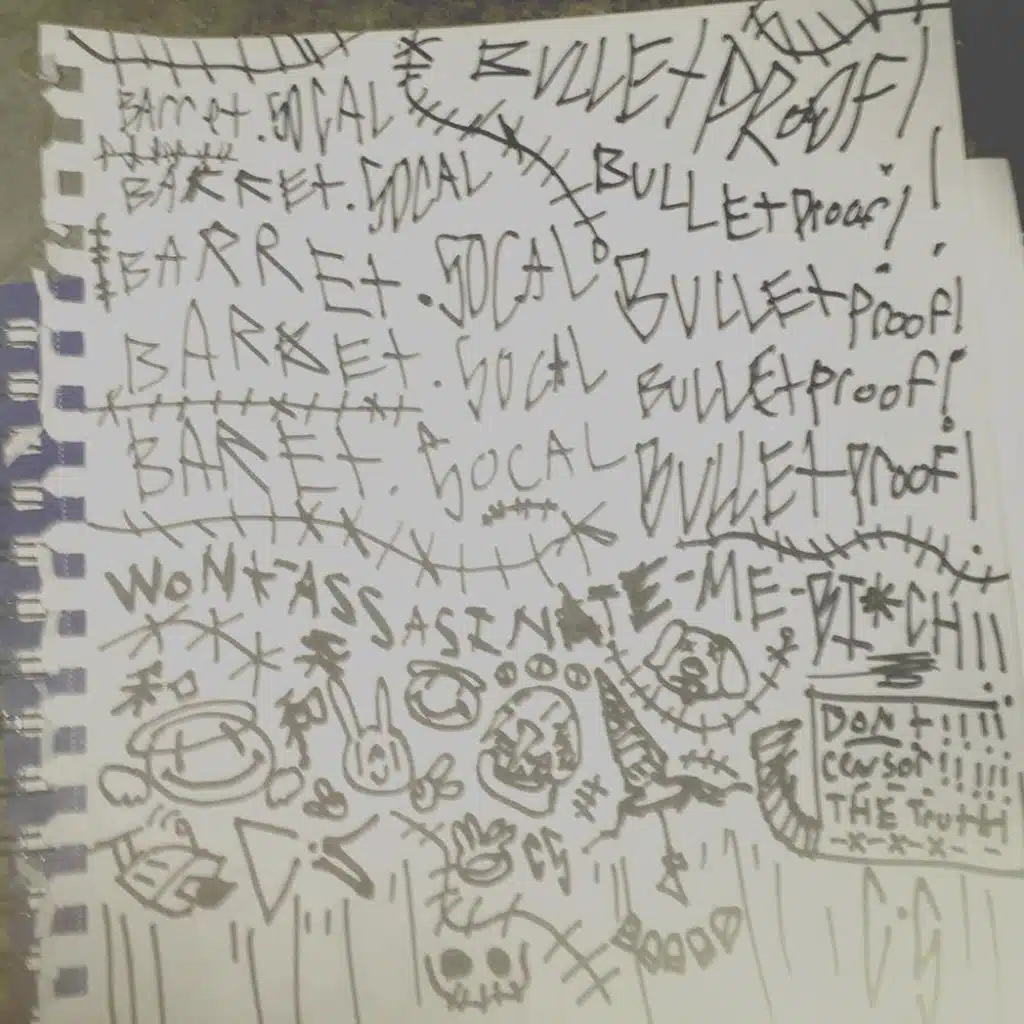 BArret.SOCAL
BULLEtPROOF!
BARRET.SOCAL
BULLEtProof!
BARREt.SOCAL
BULLEtproof!
BARREt.SOCAL
BULLEtproof!
BARET.SOCAL
BULLEtproof!
WONt-ASSASINATE-ME-BI*CH!!
DONt!!!!
censor!!!!!
THE TrutH
CS
C.S